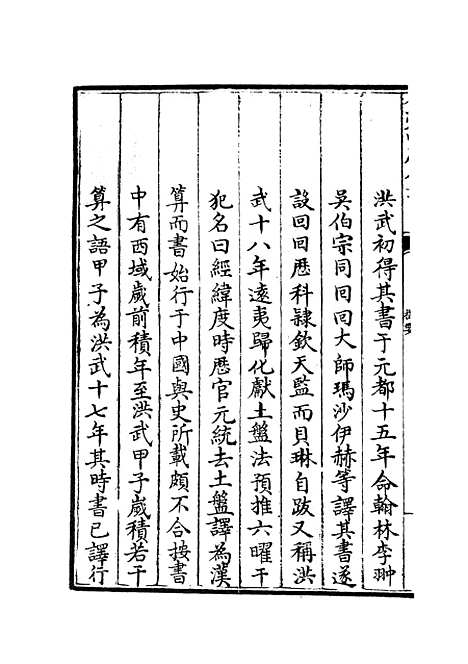 洪武初得其書于元都十五年命翰林李翀
吳伯宗同回回大師瑪沙伊赫等譯其書遂
設回回厯科隸欽天監而貝琳自跋又稱洪
武十八年逺夷歸化獻土盤法預推六曜干
犯名曰經緯度時厯官元統去土盤譯為漢
算而書始行于中國與史所載頗不合按書
中有西域歲前積年至洪武甲子歲積若干
算之語甲子為洪武十七年其時書已譯行